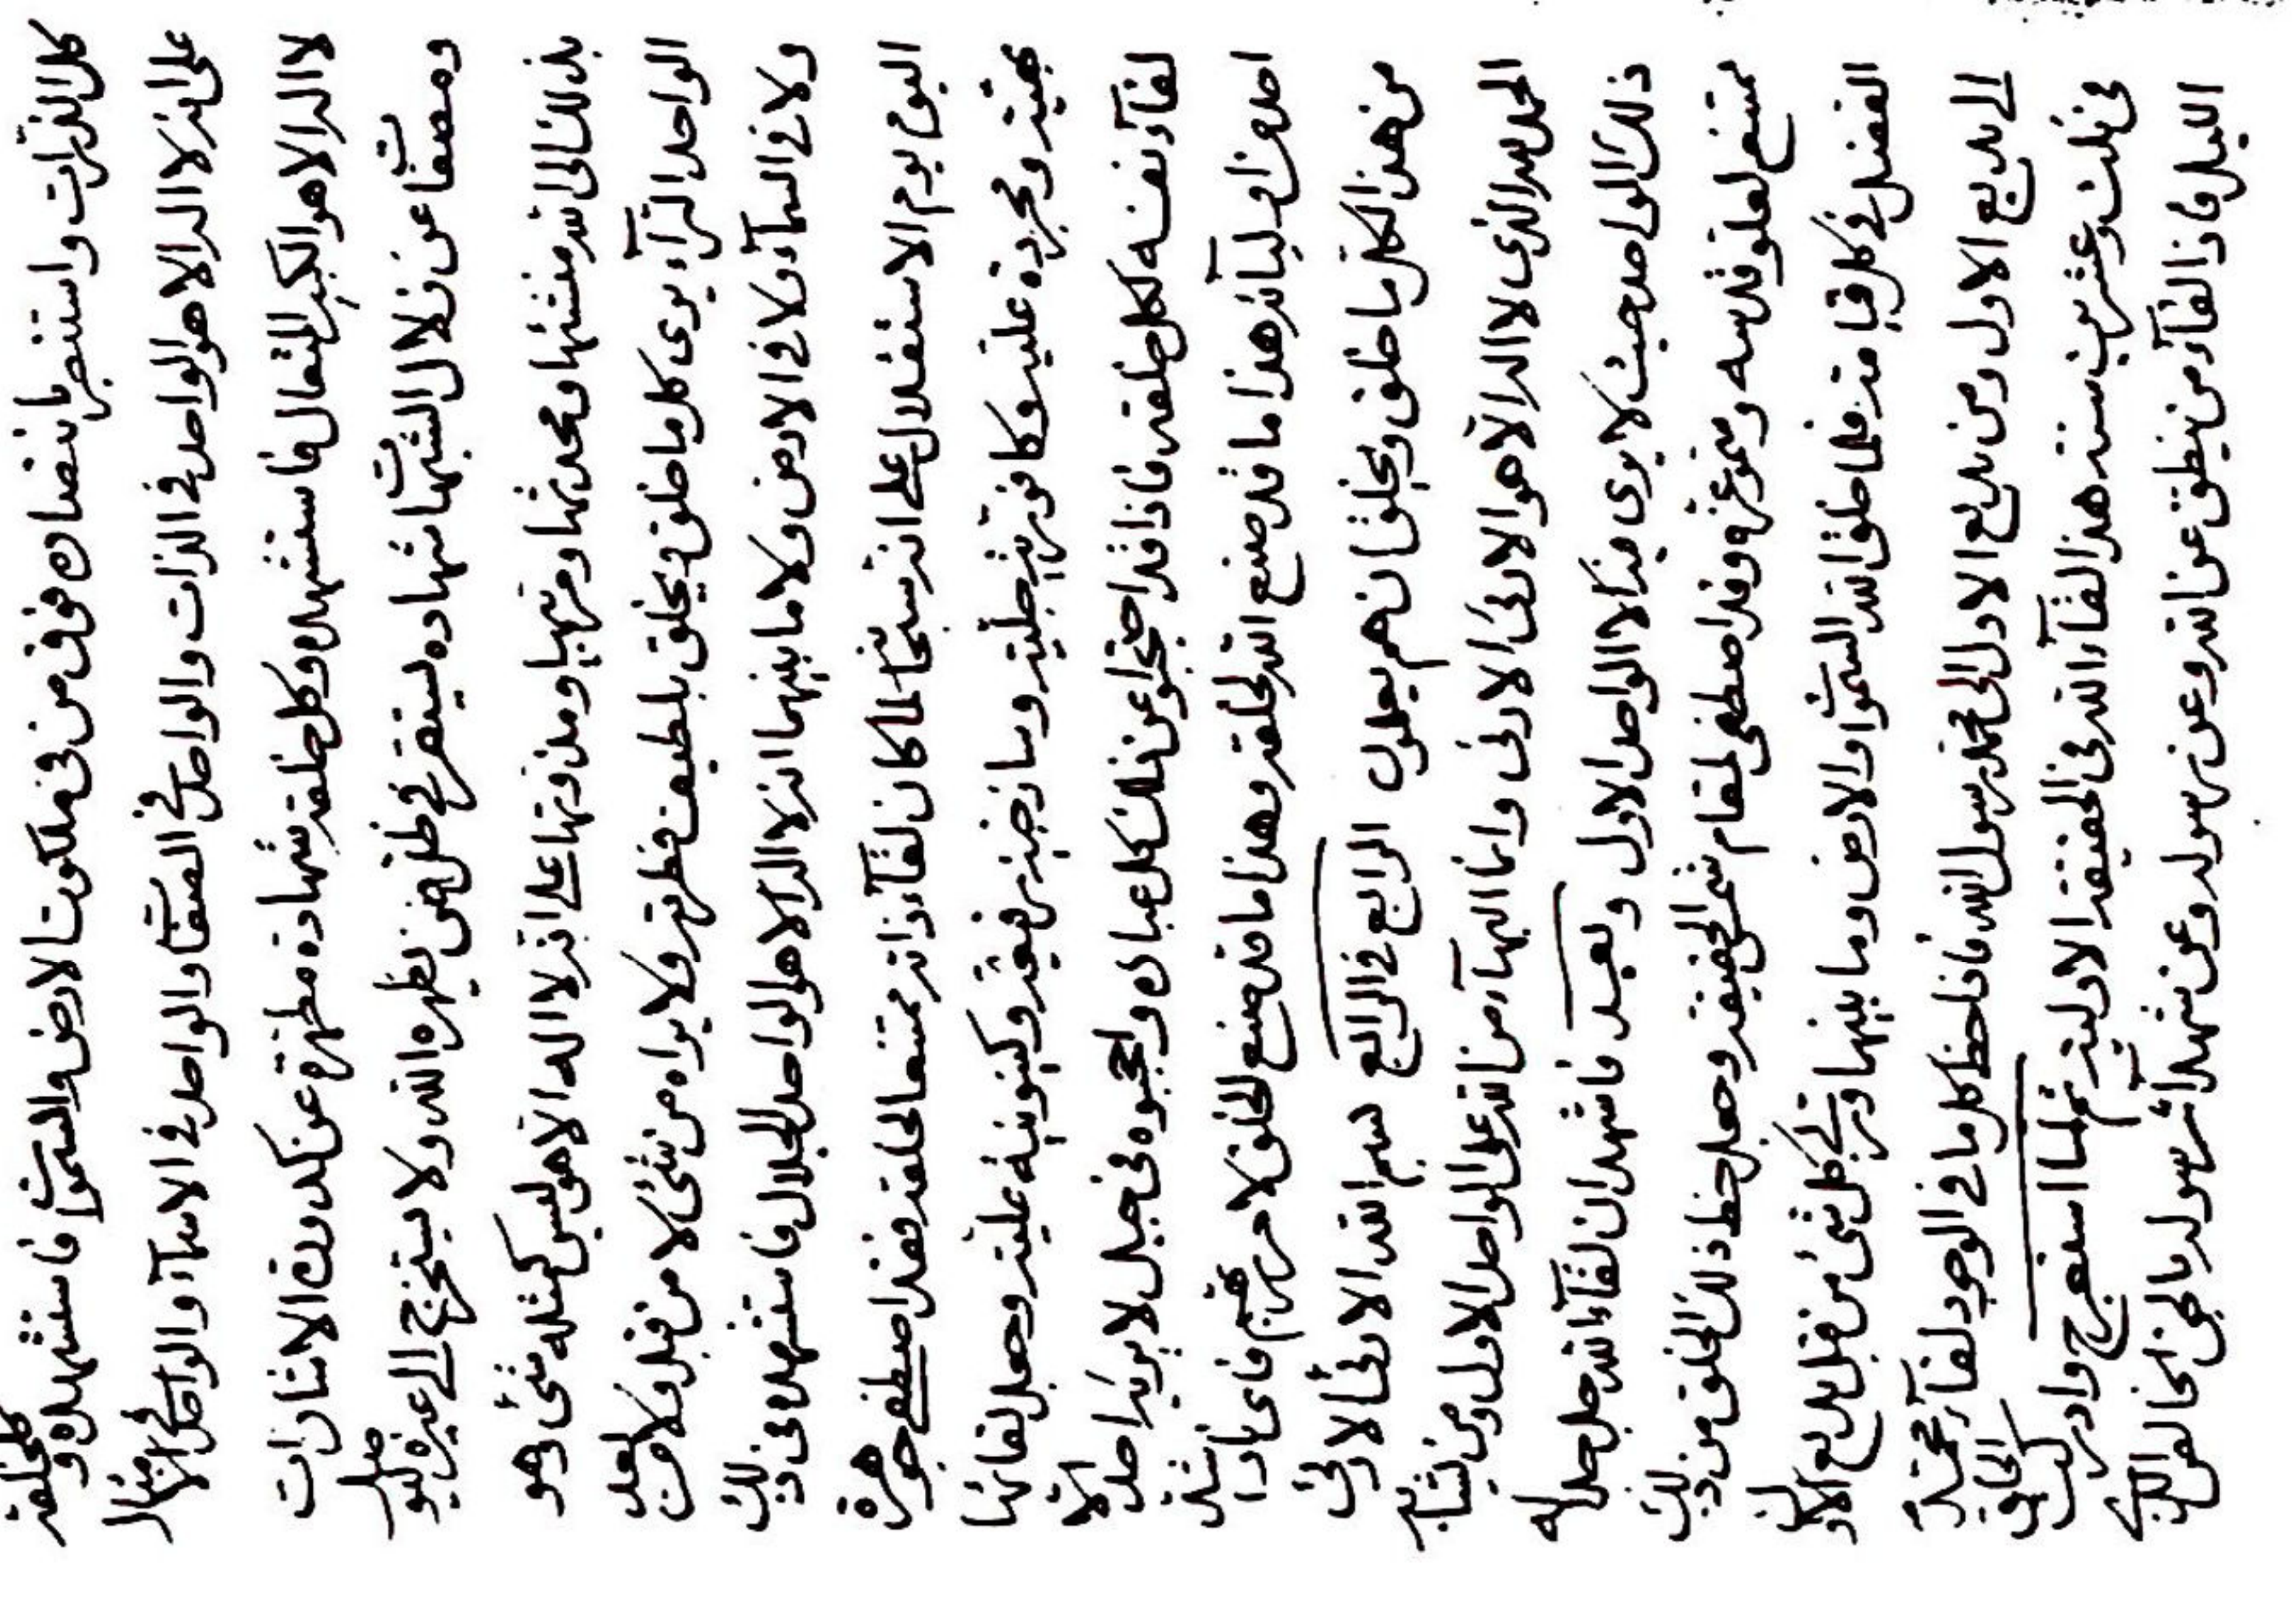 كل الذرات واستنصر بانتصاره فوق من في ملكوت الارض والسموات فاستشهده وكل خلقه
على انه لا اله الا هو الواحد في الذات والواحد في الصفات والواحد في الاسماء والواحد في الامثال
لا اله الا هو الكبير المتعال فاستشهده وكل خلقه شهادة مطهرة عن كدورت الاشارات
ومصفاة عن زلال الشبهات شهاده ليستقر في ظلها من يظهره الله ولا يستخرج الى غيره ليوصل
بذلك الى الله منشئها ومحدثها ومربيها ومذوتها على انه لا اله الا هو ليس كمثله شئ وهو
الواحد التراء يرى كل ما خلق ويخلق بلطيف نظرته ولا يراه من شئ لا من قبل ولا من بعد
ولا في السماء ولا في الارض ولا ما بينهما انه لا اله الا هو الواحد الجلال فاستشهده في ذلك
اليوم يوم الاستقلال على انه سبحانه لما كان لقاء ذاته ممتنعا لخلقه فقد اصطفى جوهرة
بهيته ومجردة عليته وكافورته جليته وساذجته رفيعته وكينونيته عليته وجعل لقائها
لقاء نفسه لكل خلقه فاذا قد احتجبوا عن ذلك كل عبادى واحجبوه في جبل لا يريد احد الا
احد من اولياء هذا ما قد صنع الله لخلقه وهذا ما قد صنع الخلق لا مربيهم فاى بادا شد
من هذا لكل ما خلق ويخلق ان هم يعلمون الرابع في الرابع بسم الله الادنى الادنى
الحمد لله الذى لا اله الا هو الادنى الادنى وانما البهاء من الله على الواحد الاول ومن يشابه
ذلك الواحد حيث لا يرى فيه الا الواحد الاول وبعد فاشهد ان لقاء الله جل جلاله
ممتنع لعلو قدسه وسمو عزه وقد اصطفى لمقام شمس الحقيقة وجعل حظ ذلك الخلق من ذلك
الفضل في كل قيامة فلما خلق الله السموات والارض وما بينهما ورتب كل شئ من قبل بديع الاول
الى بديع الاول ومن بديع الاول الى محمد رسول الله فلحظ كل ما في الوجود لقاء محمد
في ثلث وعشرين سنة هذا لقاء الله في الحقيقة الاولية ثم لما استعرج وادركت الخلق
الليل فاذا لقاء من ينطق عن الله وعن رسوله وعن شهداء رسوله بالحق الخالص الذى